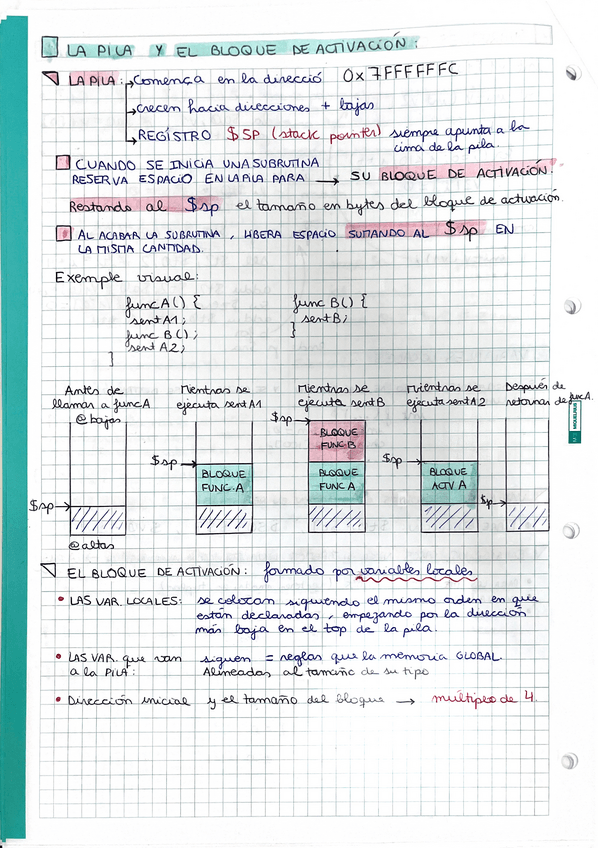 LA PILA Y EL BLOQUE DE ACTIVACIÓN:
LA PILA: → Comença en la direcció 0x7FFFFFFC
→ crecen hacia direcciones + bajas
→ REGISTRO $SP (stack pointer) siempre apunta a la
cima de la pila.
CUANDO SE INICIA UNA SUBRUTINA
RESERVA ESPACIO EN LA PILA PARA → SU BLOQUE DE ACTIVACIÓN.
Restando al $sp el tamaño en bytes del bloque de activación.
AL ACABAR LA SUBRUTINA, LIBERA ESPACIO SUMANDO AL $sp EN
LA MISMA CANTIDAD.
Exemple visual:
func A() {
sent A1;
func B();
sent A2;
}
func B() {
sent B;
}
Antes de
llamar a func A
@ bajas
$sp →
@ altas
Mientras se
ejecuta sent A1
$sp →
BLOQUE
FUNC. A
Mientras se
ejecuta sent B
$sp →
BLOQUE
FUNC. B
BLOQUE
FUNC. A
Mientras se
ejecuta sent A2
$sp →
BLOQUE
ACTV A
Después de
retornar de func A.
$sp →
MIQUELRIUS
EL BLOQUE DE ACTIVACIÓN: formado por variables locales
• LAS VAR. LOCALES: se colocan siguiendo el mismo orden en que
están declaradas, empezando por la dirección
más baja en el top de la pila.
• LAS VAR. que van siguen = reglas que la memoria GLOBAL.
a la PILA: Alineadas al tamaño de su tipo
• Dirección inicial y el tamaño del bloque → múltiplo de 4.